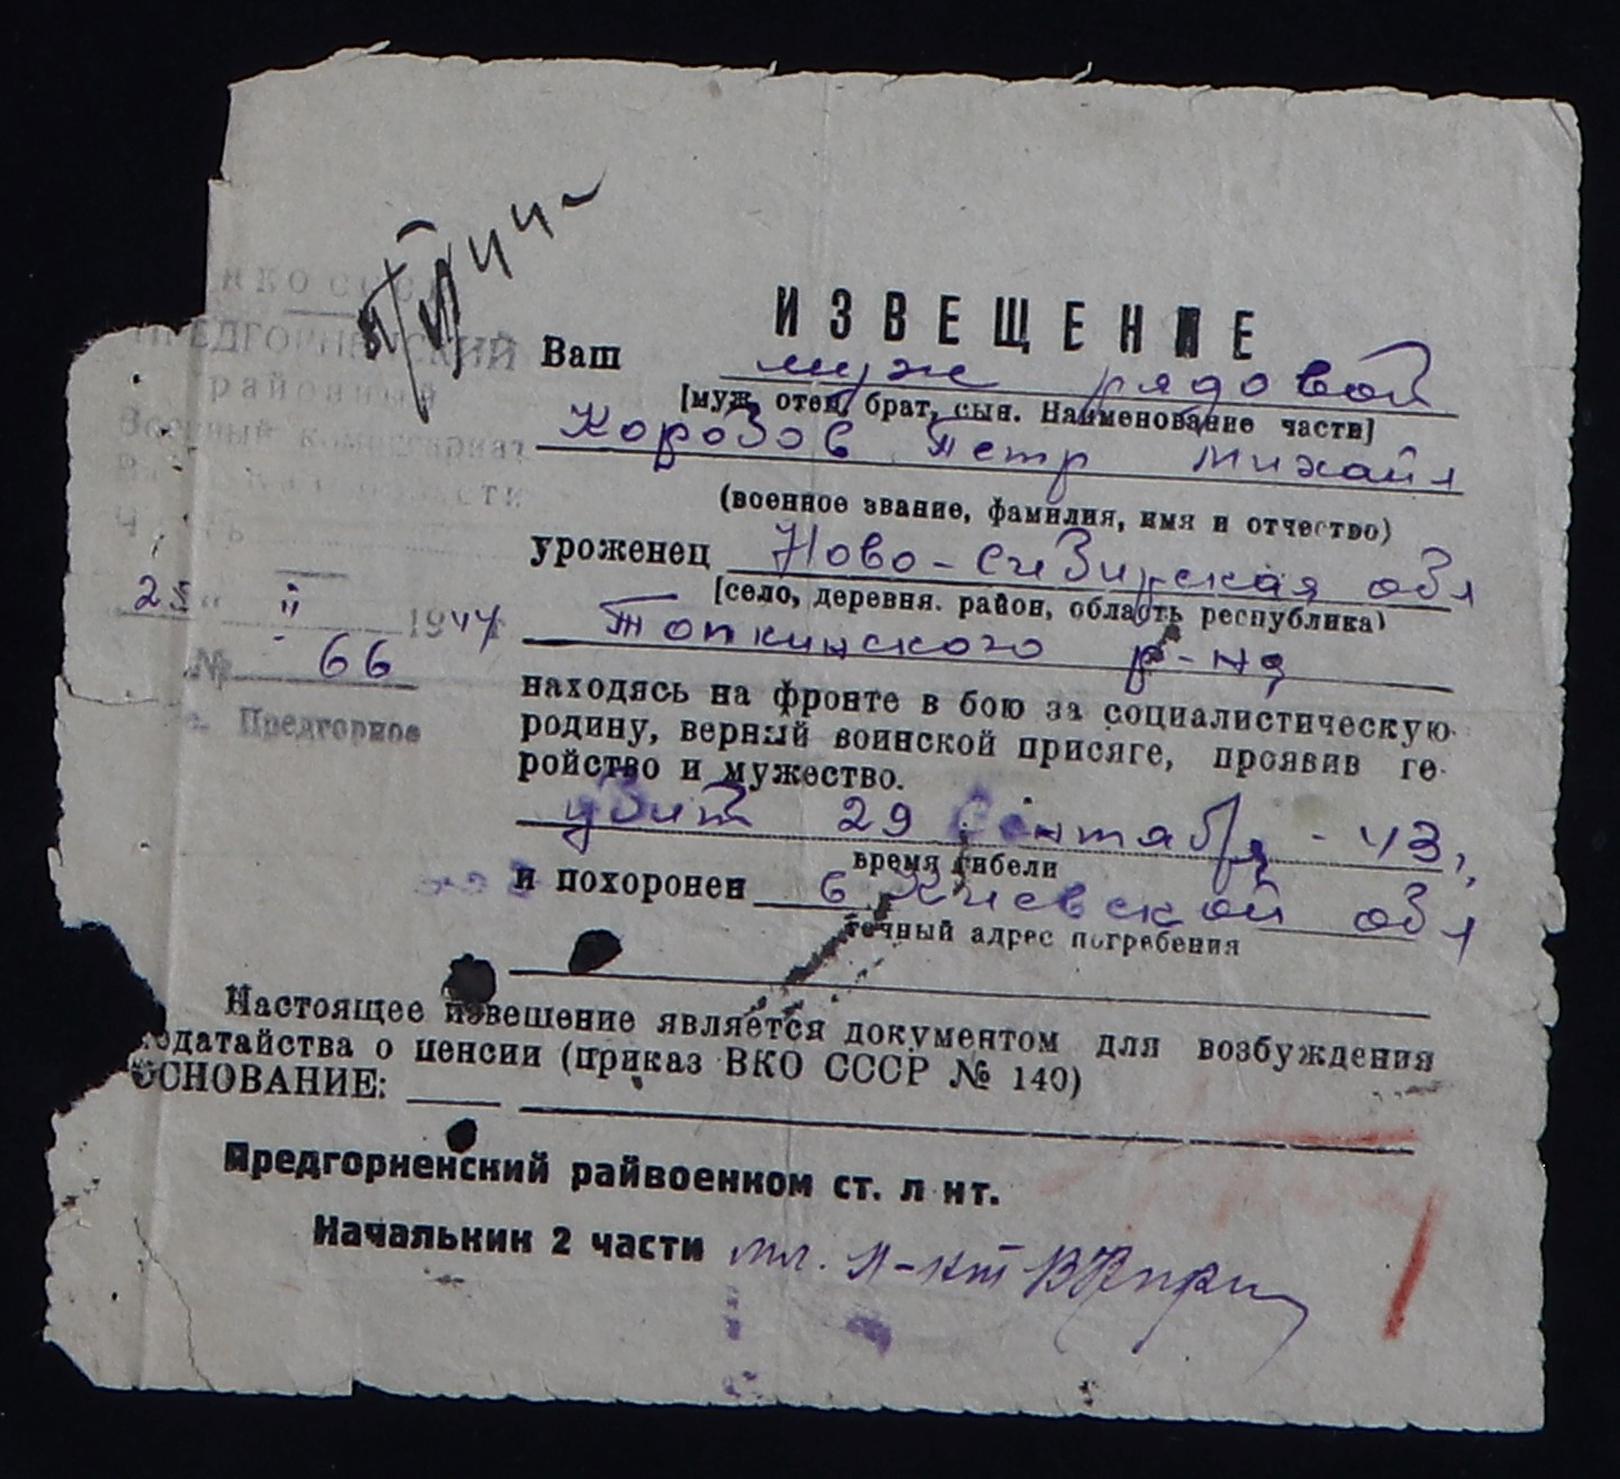 НКО СССР
ПРЕДГОРНЕНСКИЙ
районный
Военный комиссариат
области
Часть
25 " II 1944 г
№ 66
с. Предгорное
ИЗВЕЩЕНИЕ
Ваш муж рядовой
[муж, отец, брат, сын. Наименование части]
Коробов Петр Михайл
(военное звание, фамилия, имя и отчество)
уроженец Ново-Сибирская обл
[село, деревня. район, область республика)
Топкинского р-на
находясь на фронте в бою за социалистическую
родину, верный воинской присяге, проявив ге-
ройство и мужество.
убит 29 Сентября - 43,
время гибели
и похоронен в Киевской обл
точный адрес погребения
Настоящее извешение является документом для возбуждения
ходатайства о пенсии (приказ ВКО СССР № 140)
ОСНОВАНИЕ:
Предгорненский райвоенком ст. л-нт.
Начальник 2 части мл. л-нт